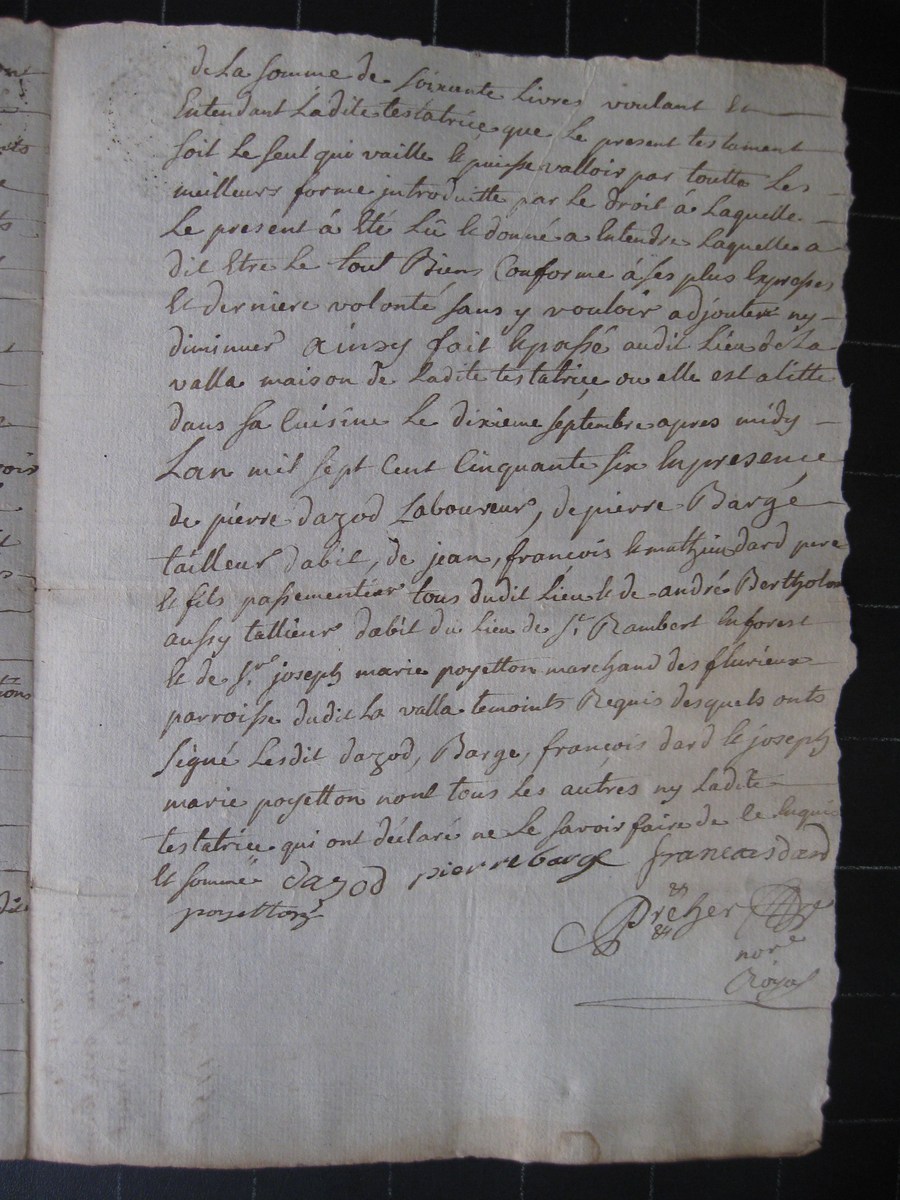 de La somme de soixante Livres voulant Et
Entendant Ladite testatrice que Le present testament
soit Le seul qui vaille & puisse valloir par toutte Les
meilleurs forme introduitte par Le droit à Laquelle
Le present à Eté Lû & donné a Entendre Laquelle a
dit Etre Le tout Biens Conforme à ses plus Expresses
Et derniere volonté sans y vouloir adjouter ny
diminuer ainsy fait & passé audit Lieu de La
valla maison de Ladite testatrice ou elle est alitté
dans sa Cuisine Le dixieme septembre apres midy
Lan mil sept Cent Cinquante six En presence
de pierre dazod Laboureur, de pierre Bargé
tailleur dabit, de jean, françois & mathieu dard pere
Et fils passementier tous dudit Lieu & de andré
aussy tallieur dabit du Lieu de St. Rambert En forest
Et de Sr. joseph marie poyetton marchand des flurieux
parroisse dudit La valla temoints Requis desquels onts
signé Lesdit dazod, Barge, françois dard & joseph
marie poyetton nont tous Les autres ny Ladite
testatrice qui ont déclaré ne Le savoir faire de Ce Enquis
Et sommé dazod pierre barge francois dard
poyetton
nore
Royal